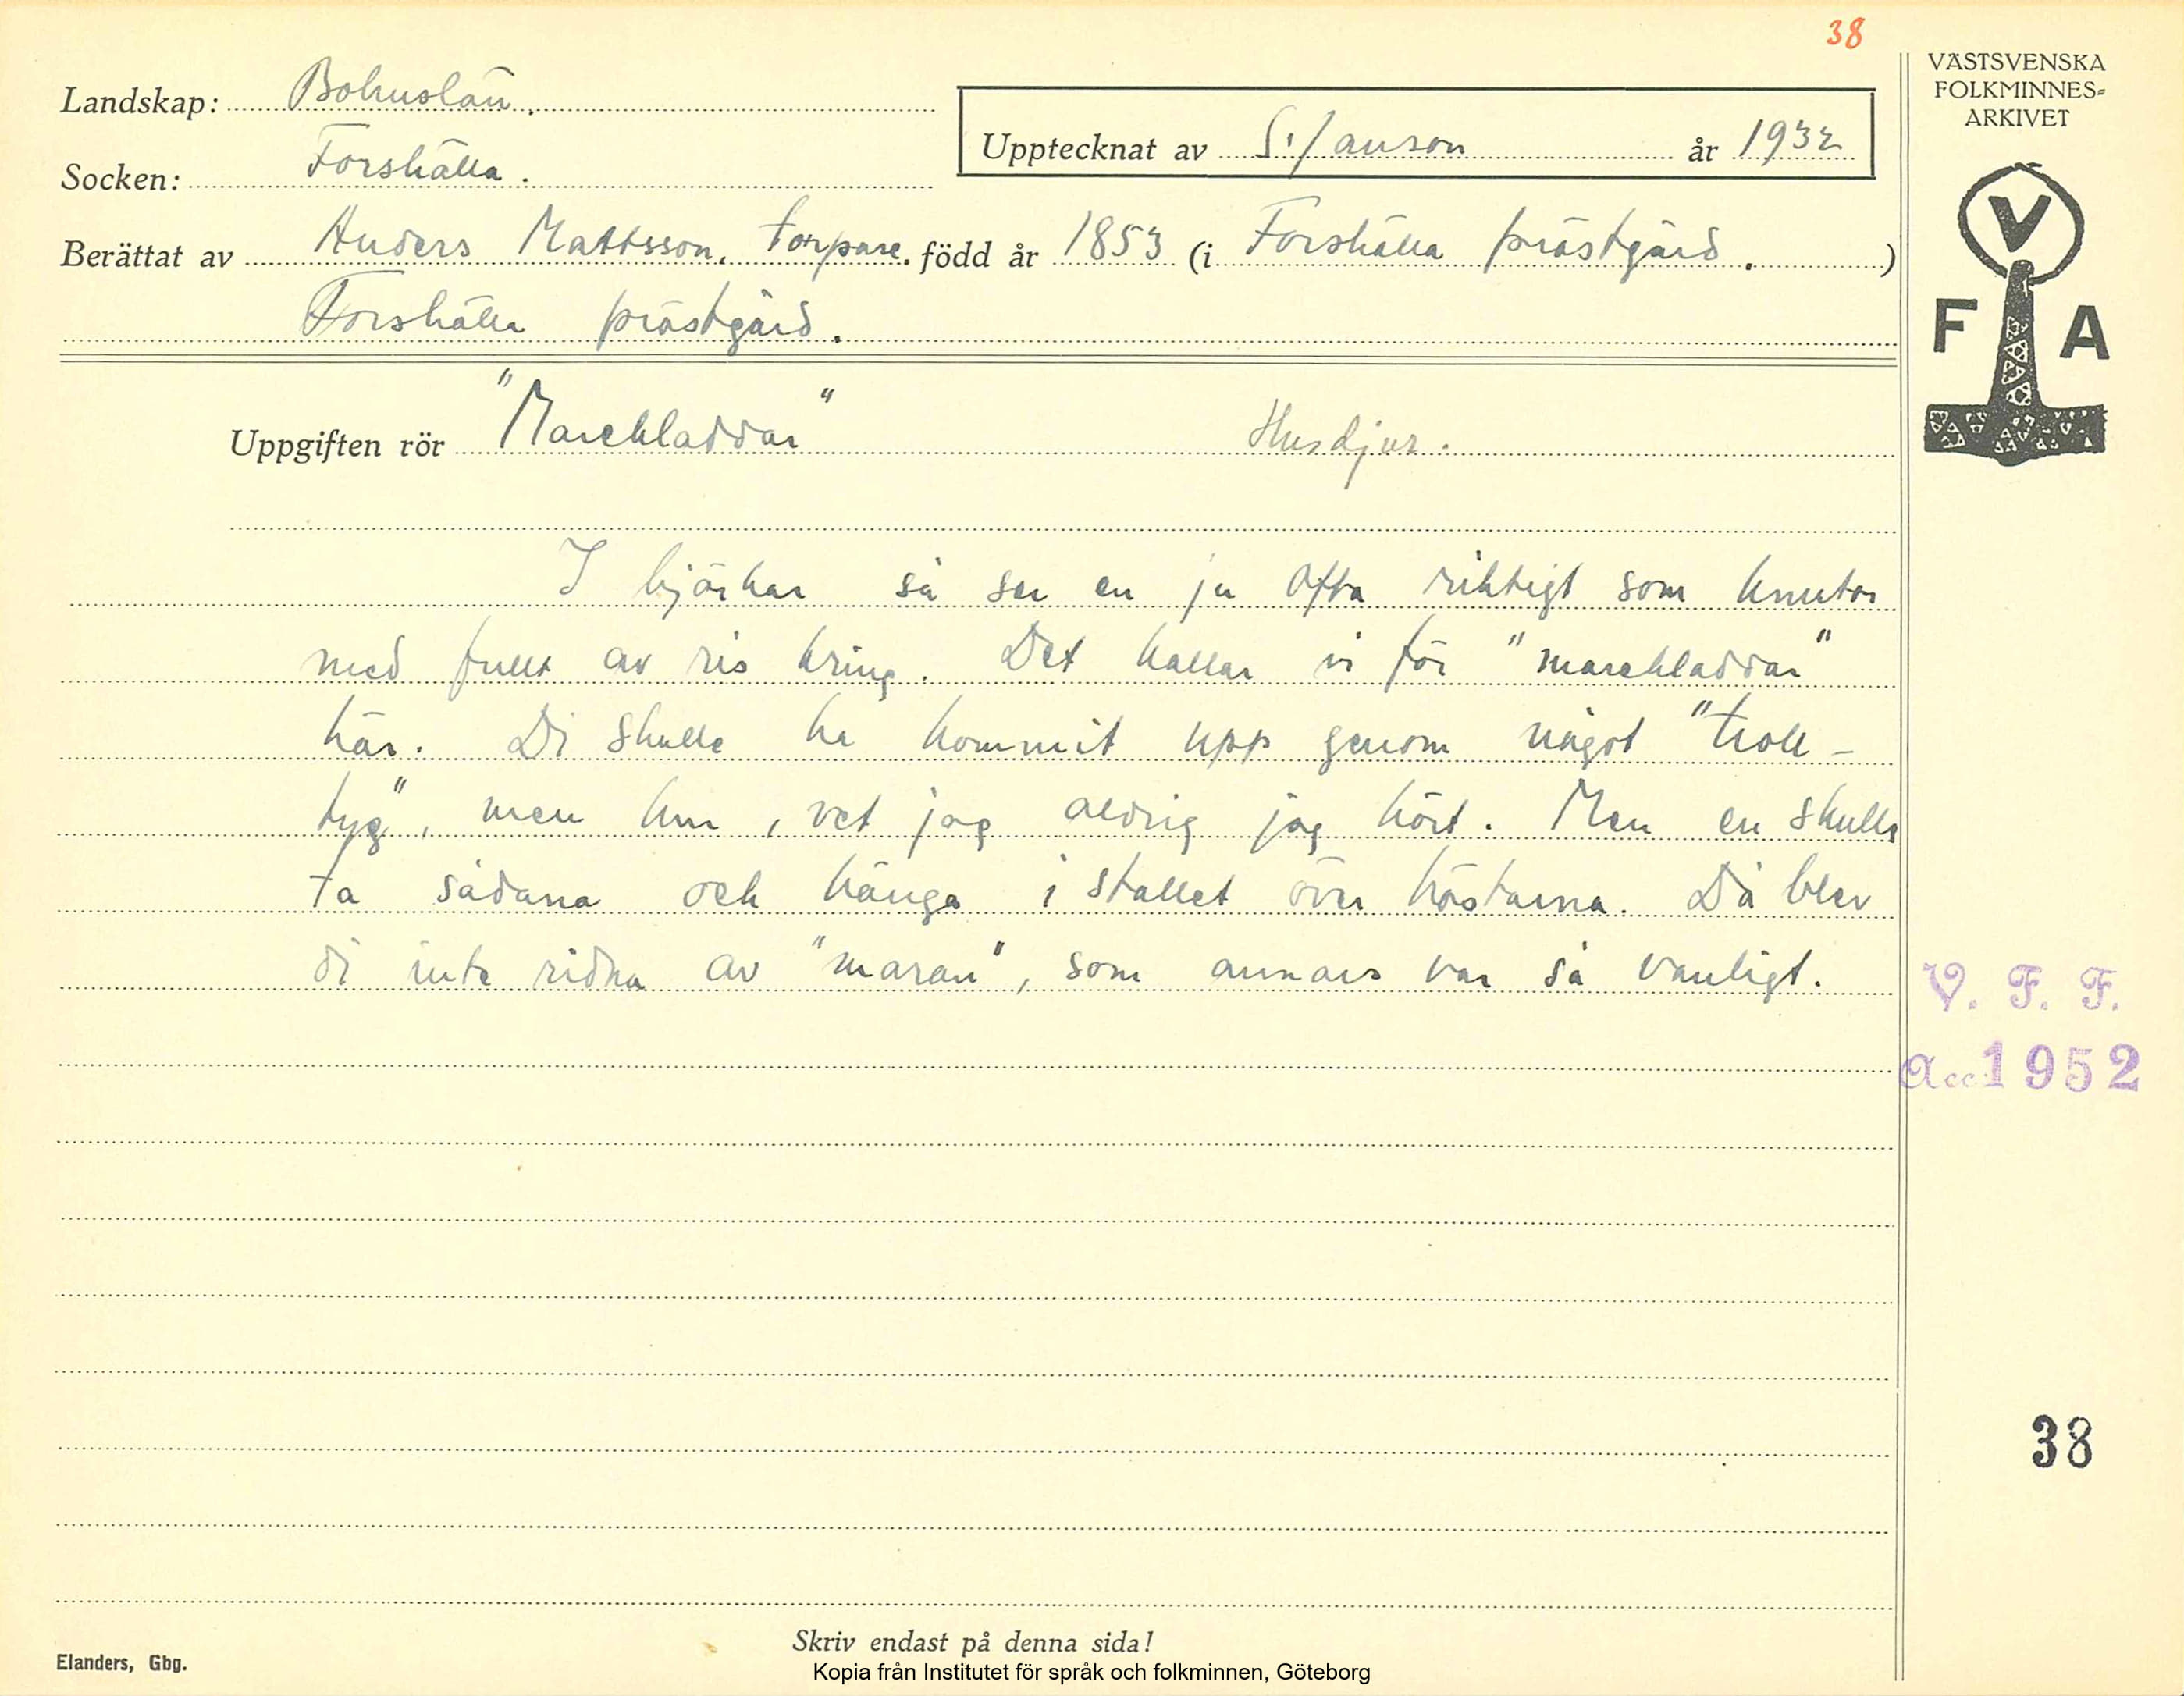 38
Landskap: Bohuslän.
Socken: Forshälla.
Upptecknat av S. Janson år 1932
Berättat av Anders Mattsson, torpare. född år 1853 (i Forshälla prästgård.)
Forshälla prästgård.
Uppgiften rör "Marekladdar" Husdjur.
I björkar så ser en ju ofta riktigt som knutor
med fullt av ris kring. Det kallar vi för "marekladdar"
här. Di skulle ha kommit upp genom något "troll-
tyg", men hur, vet jag aldrig jag hört. Men en skulle
ta sådana och hänga i stallet över hästarna. Då blev
di inte ridna av "maran", som annars var så vanligt.
VÄSTSVENSKA
FOLKMINNES-
ARKIVET
V
F A
V. F. F.
Acc. 1952
38
Skriv endast på denna sida!
Elanders, Gbg.
Kopia från Institutet för språk och folkminnen, Göteborg